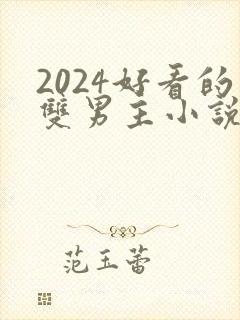 2024好看的
雙男主小説
范玉蕾